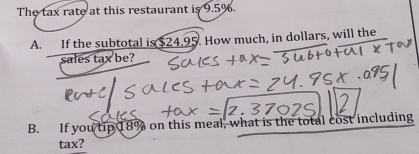 The tax rate at this restaurant is 9.5%.
A. If the subtotal is $24.95. How much, in dollars, will the
sales tax be? sales tax= subtotal x Tax
Rate/ sales tax= 24.95x .095/
sales tax = 2.37025 | 2
B. If you tip 18% on this meal, what is the total cost including
tax?